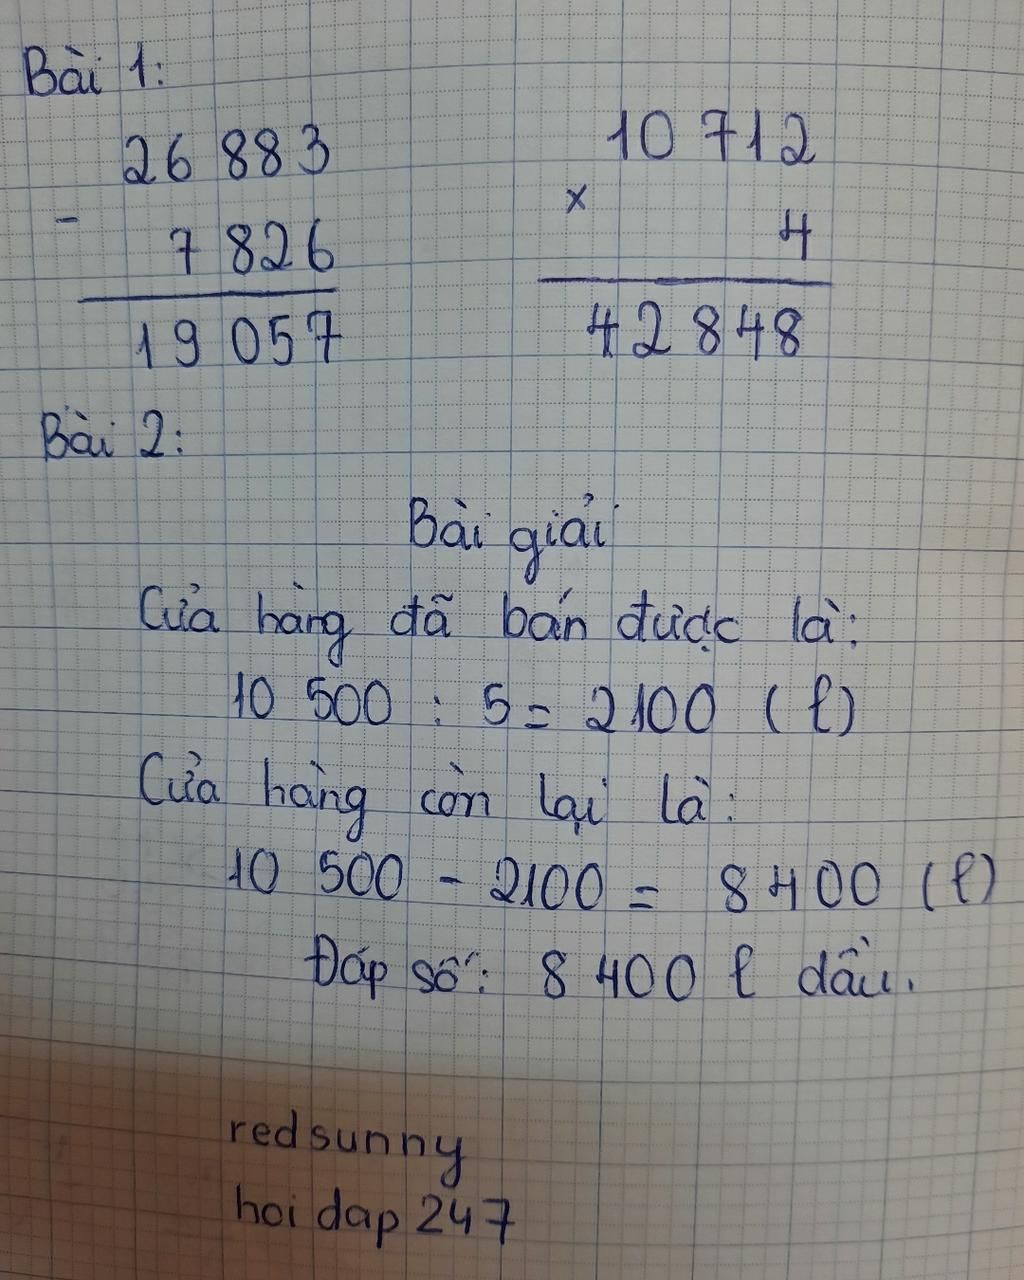 Bài 1:
26 883
-
7 826
19 057
10 712
x
4
42 848
Bài 2:
Bài giải
Cửa hàng đã bán được là:
10 500 : 5 = 2100 (l)
Cửa hàng còn lại là:
10 500 - 2100 = 8 400 (l)
Đáp số: 8 400 l dầu.
redsunny
hoi dap 247